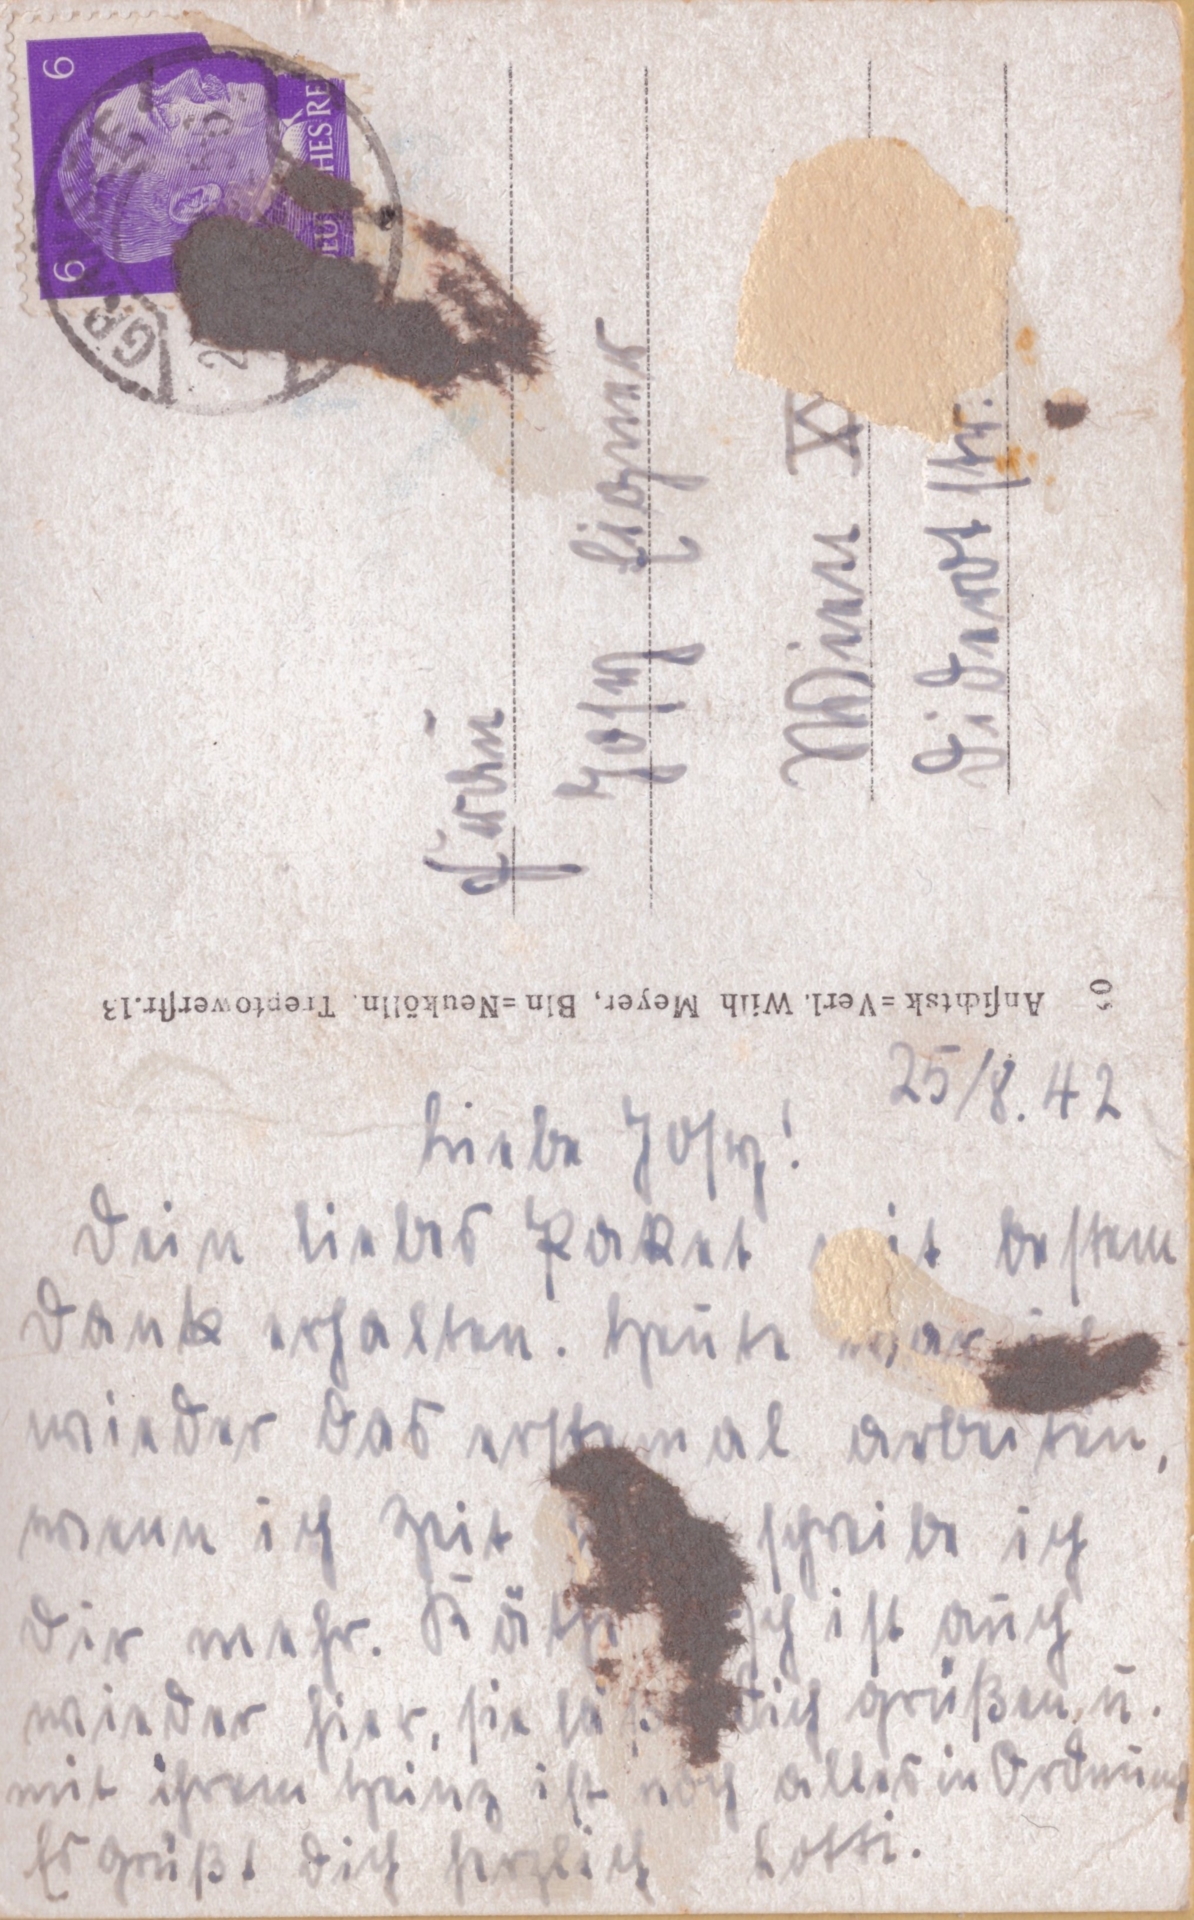 6
6
DEUTSCHES RE
GR
Fräulein
Josefine
Wien XX
Diderotstr.
Ansichtsk=Verl. Wilh Meyer, Bln=Neukölln. Treptowerstr.13
25/8.42
Liebe Josefi!
Dein liebes Paket mit bestem
Dank erhalten. Heute war ich
wieder das erstemal arbeiten,
wenn ich Zeit schreibe ich
Dir mehr. ist auch
wieder hier, sie läßt Dich grüßen u.
mit ihrem Heinz ist noch alles in Ordnung
Es grüßt Dich herzlich Lotti.